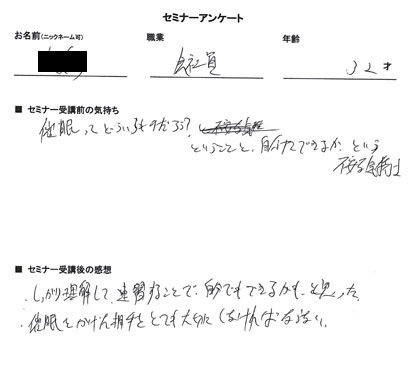 セミナーアンケート
お名前(ニックネーム可) 職業 年齢
会社員 32才
■ セミナー受講前の気持ち
催眠ってどういう感じだろう?
ということと、自分にもできるか という
不安な気持ち
■ セミナー受講後の感想
・しっかり理解して、連習することで、自分でもできるかも、と思った
・催眠をかけん相手をとても大切にしなければならない。